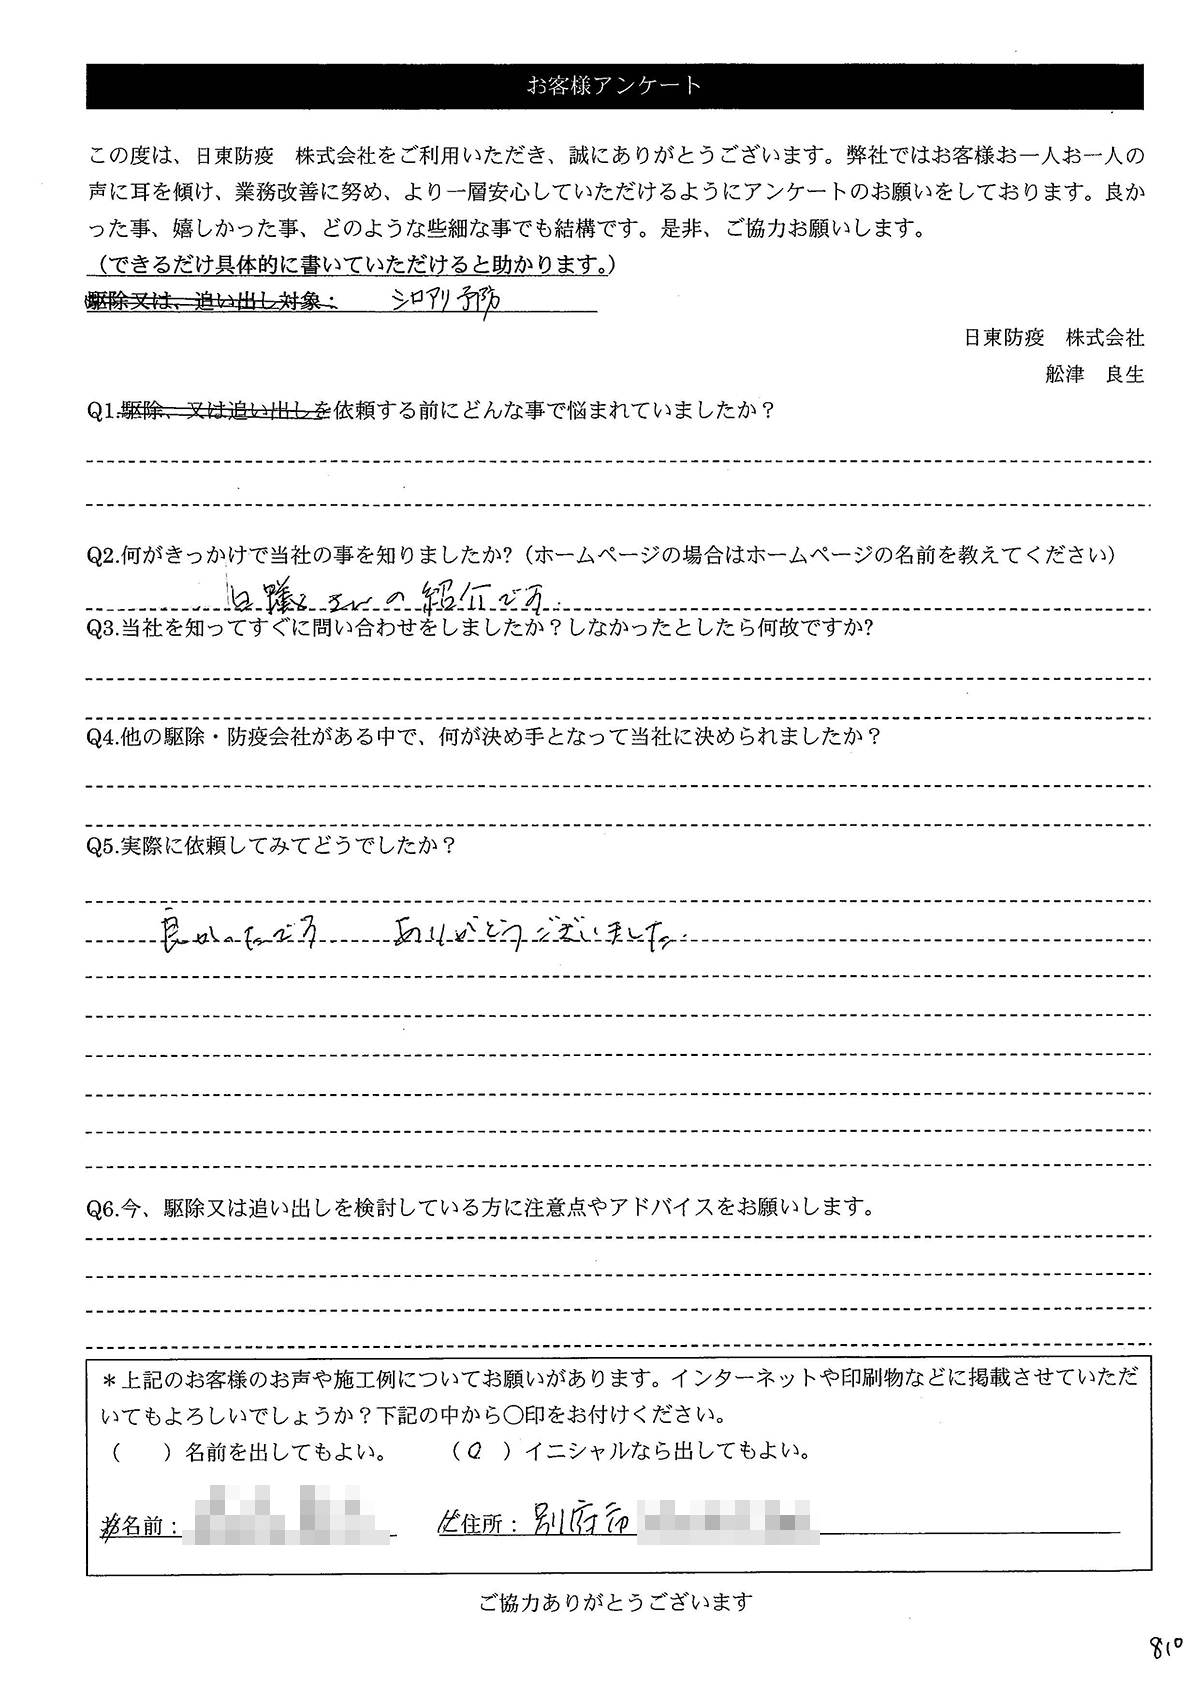 お客様アンケート
この度は、日東防疫 株式会社をご利用いただき、誠にありがとうございます。弊社ではお客様お一人お一人の
声に耳を傾け、業務改善に努め、より一層安心していただけるようにアンケートのお願いをしております。良か
った事、嬉しかった事、どのような些細な事でも結構です。是非、ご協力お願いします。
（できるだけ具体的に書いていただけると助かります。）
駆除又は、追い出し対象： シロアリ予防
日東防疫 株式会社
舩津 良生
Q1.駆除、又は追い出しを依頼する前にどんな事で悩まれていましたか？
Q2.何がきっかけで当社の事を知りましたか?（ホームページの場合はホームページの名前を教えてください）
さんの紹介です.
Q3.当社を知ってすぐに問い合わせをしましたか？しなかったとしたら何故ですか?
Q4.他の駆除・防疫会社がある中で、何が決め手となって当社に決められましたか？
Q5.実際に依頼してみてどうでしたか？
良かったです ありがとうございました.
Q6.今、駆除又は追い出しを検討している方に注意点やアドバイスをお願いします。
＊上記のお客様のお声や施工例についてお願いがあります。インターネットや印刷物などに掲載させていただ
いてもよろしいでしょうか？下記の中から〇印をお付けください。
（ ）名前を出してもよい。 （○）イニシャルなら出してもよい。
お名前： ご住所：別府市
ご協力ありがとうございます
810